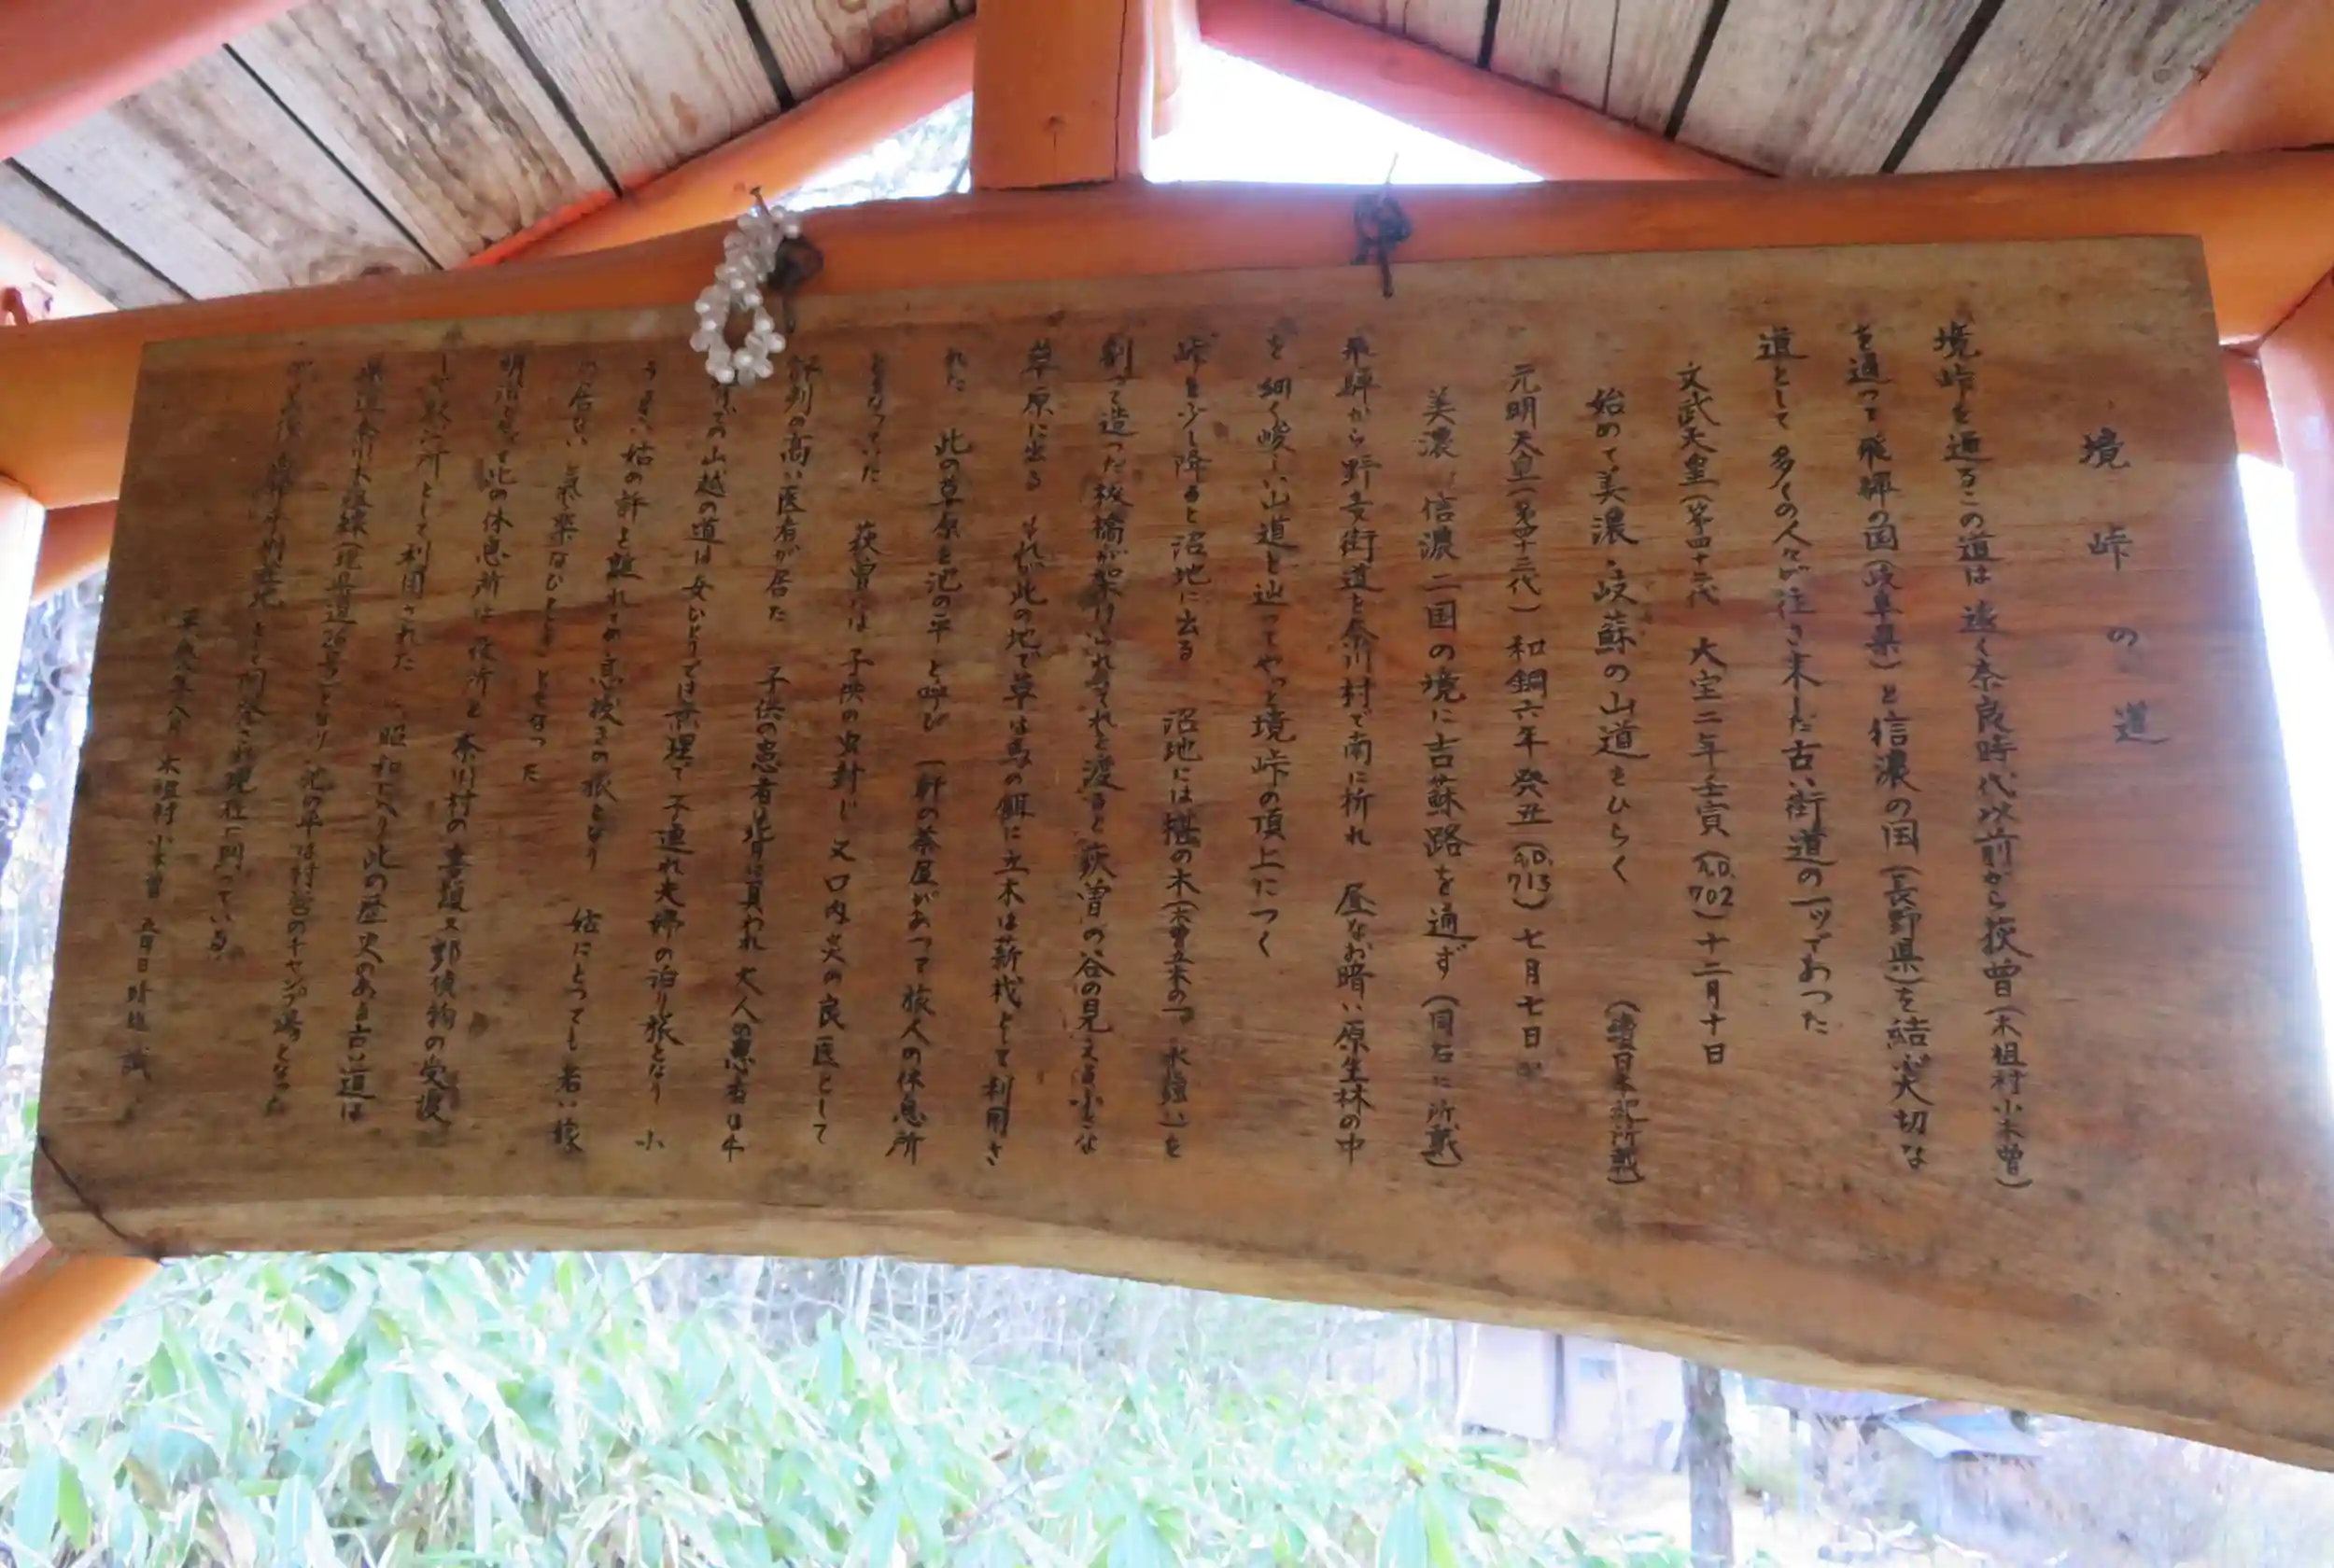 境峠の道
境峠を通るこの道は遠く奈良時代以前から荻曽(木祖村小木曽)
を通って飛騨の国(岐阜県)と信濃の国(長野県)を結ぶ大切な
道として多くの人々が往き来した古い街道の一ッであった
文武天皇(第四十二代 大宝二年壬寅(A.D.702)十二月十日
始めて美濃・岐蘇の山道をひらく (続日本紀所載)
元明天皇(第四十三代)和銅六年癸丑(A.D.713)七月七日
美濃 信濃二国の境に吉蘇路を通ず(同右に所載)
飛騨から野麦街道を奈川村で南に折れ 昼なお暗い原生林の中
を細く峻しい山道を辿ってやっと境峠の頂上につく
峠を少し降ると沼地に出る 沼地には椹の木(木曽五木の一つ 水強い)を
割って造った桟橋が架けられそれを渡ると荻曽の谷の見える小さな
草原に出る それ此の地で草は馬の餌に立木は薪炭として利用さ
れた 此の草原を池の平と呼び 一軒の茶屋があって旅人の休息所
となっていた 荻曽には子供の虫封じ又口内炎の良医として
評判の高い医者が居た 子供の患者は背に負われ大人の患者は牛
の山越の道は女ひとりでは無理で子連れ夫婦の泊り旅となり 小
うるさい姑の許を離れての息抜きの旅となり 姑にとっても若い嫁
の居ない気楽なひとときとなった
明治となって此の休息所は役所と奈川村の書類又郵便物の受渡
し 所として利用された 昭和に入り此の歴史のある古道は
県道奈川木祖線(現県道26号)となり 池の平は村営のキャンプ場となった
別荘地として開発され現在に到っている
木祖村 小木曽